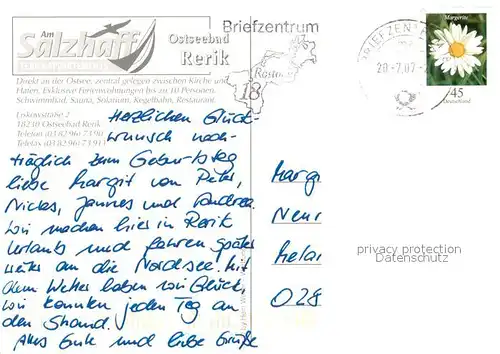 Am
Salzhaff
Ostseebad
Rerik
Direkt an der Ostsee, zentral gelegen zwischen Kirche und
Hafen. Exklusive Ferienwohnungen bis zu 10 Personen.
Schwimmbad, Sauna, Solarium, Kegelbahn, Restaurant
Liskowstraße 2
18230 Ostseebad Rerik
Telefon
Telefax
Briefzentrum
18
Rostock
BRIEFZENT
20.-7.07
Margerite
45
Deutschland
Herzlichen Glück
wunsch nach-
träglich zum Geburtstag
liebe Margit von Peter,
Niclas, Jannes und Andrea.
Wir machen hier in Rerik
Urlaub und fahren später
weiter an die Nordsee. Mit
dem Wetter haben wir Glück,
wir konnten jeden Tag an
den Strand.
Alles Gute und liebe Grüße
Marg
Neur
Melan
028
privacy protection
Datenschutz